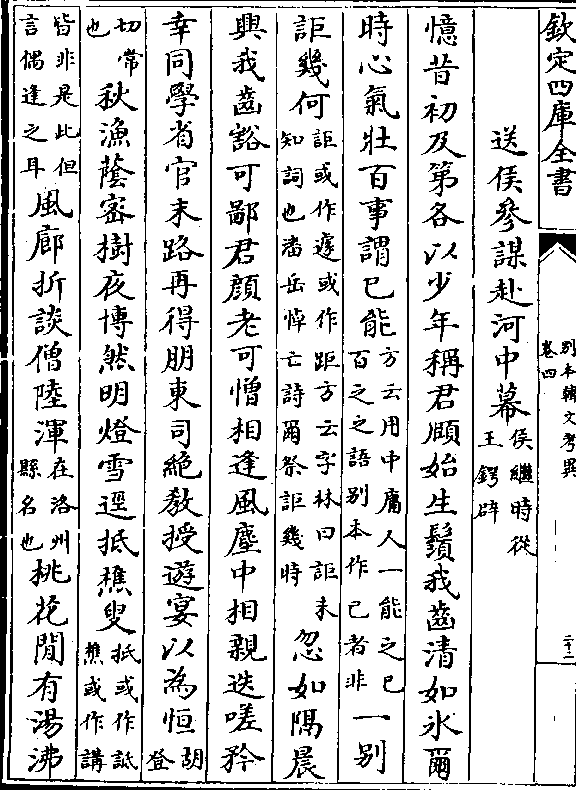 欽定四庫全書
别本韓文考異
卷四
二十二
送侯參謀赴河中幕侯繼時從
王鍔辟
憶昔初及第各以少年稱君頤始生鬚我齒清如氷爾
時心氣壯百事謂已能方云用中庸人一能之已
百之之語别本作已者非一别
詎幾何詎或作遽或作距方云字林曰詎未
知詞也潘岳悼亡詩爾祭詎幾時忽如隔晨
興我齒豁可鄙君顔老可憎相逢風塵中相親迭嗟矜
幸同學省官末路再得朋東司絶教授遊宴以為恒胡
登
切常
也秋漁䕃密樹夜博然明燈雪逕抵樵叟抵或作詆
樵或作講
皆非是此但
言偶逢之耳風廊折談僧陸渾在洛州
縣名也桃花閒有湯沸